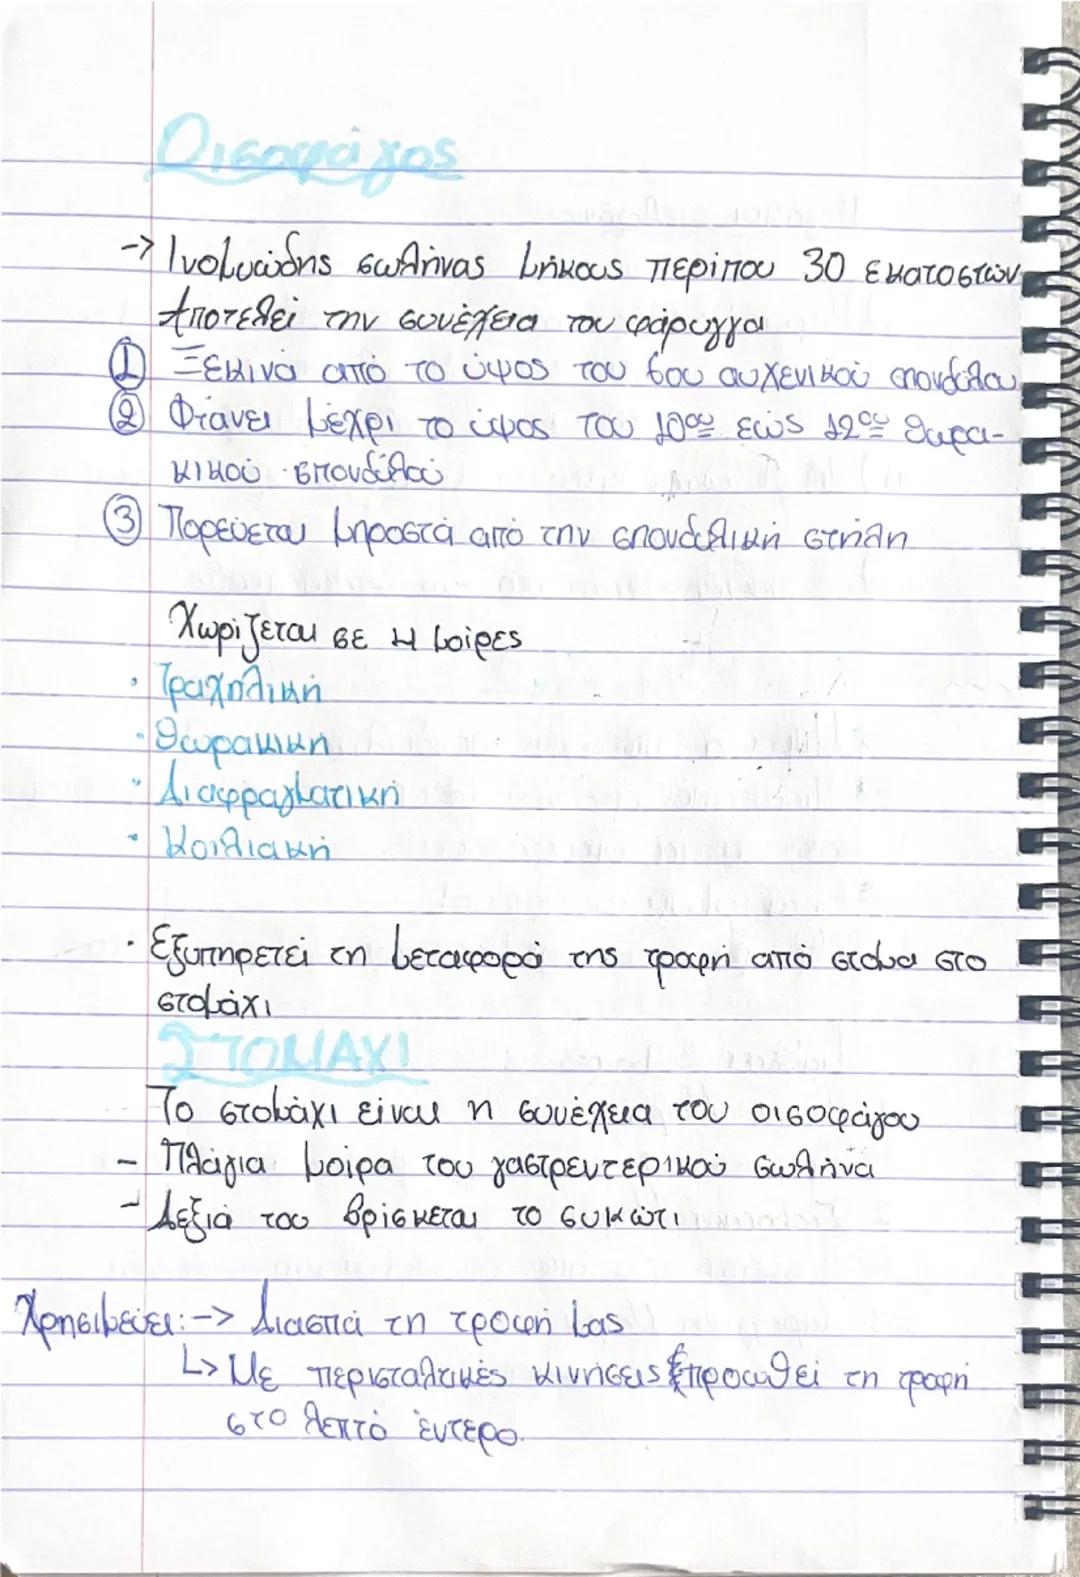 Οισοφάγος
-> Ινομυώδης σωλήνας μήκους περίπου 30 εκατοστών
Αποτελεί την συνέχεια του φάρυγγα
① Ξεκινά από το ύψος του 6ου αυχενικού σπονδύλου
② Φτάνει μέχρι το ύψος του 10ου εώς 12ου θωρα-
κικού σπονδύλού
③ Πορεύεται μπροστά από την σπονδυλική στήλη
Χωρίζεται σε 4 μοίρες
· Τραχηλική
· Θωρακική
· Διαφραγματική
· Κοιλιακή
· Εξυπηρετεί τη μεταφορά της τροφή από στόμα στο
στομάχι
ΣΤΟΜΑΧΙ
Το στομάχι είναι η συνέχεια του οισοφάγου
- Πλάγια μοίρα του γαστρεντερικού σωλήνα
- Δεξιά του βρίσκεται το συκώτι
Χρησιμεύει: -> Διασπά τη τροφή μας
↳ Με περισταλτικές κινήσεις προωθεί τη τροφή
στο λεπτό έντερο.